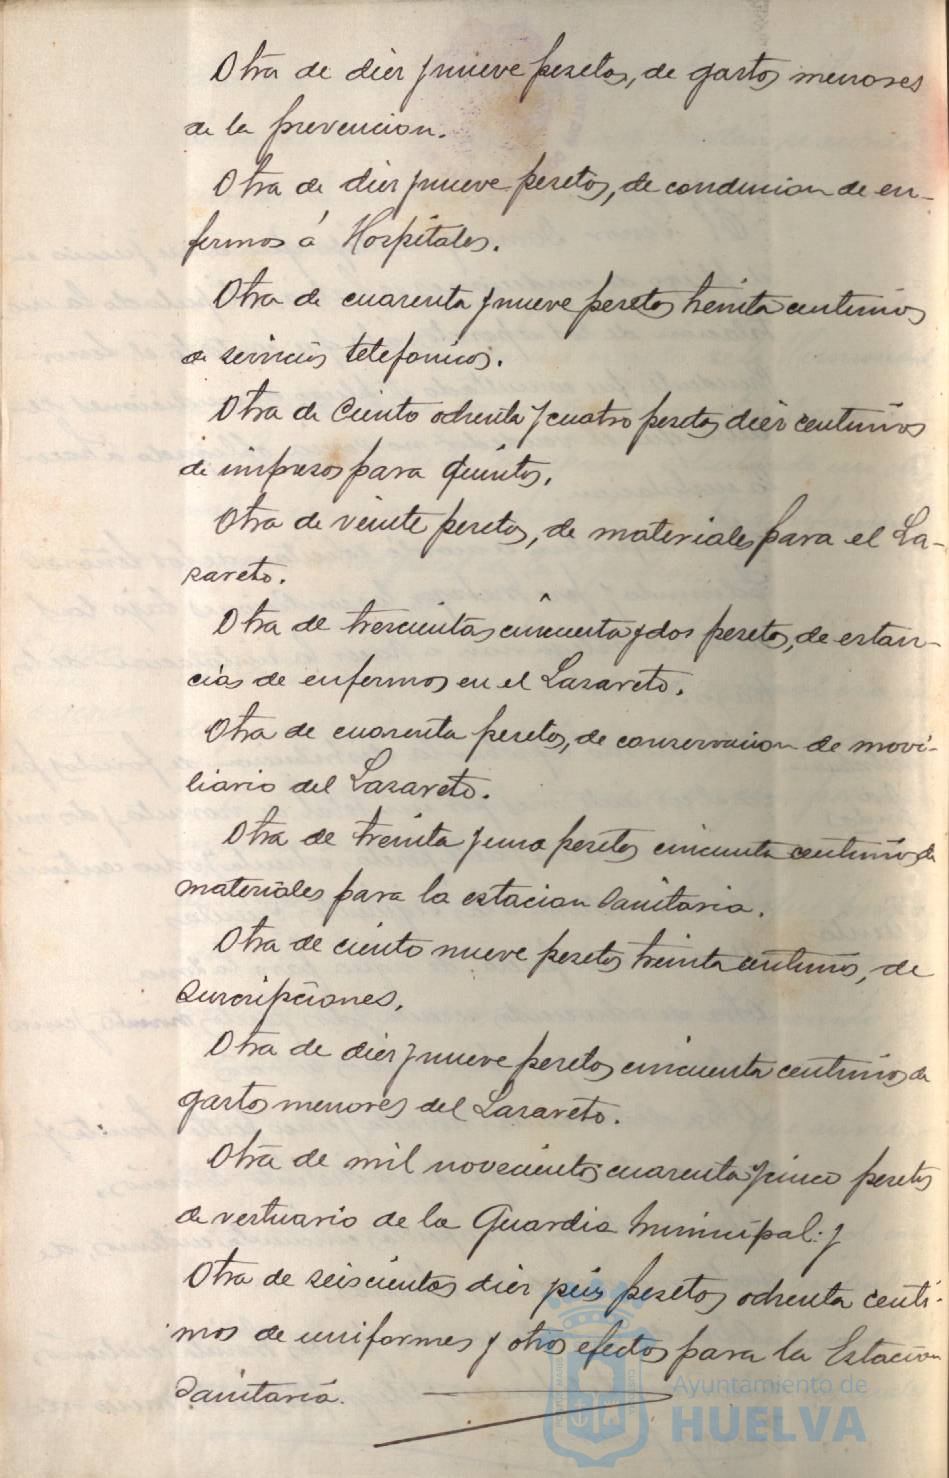 Otra de diez y nueve pesetas, de gastos menores
de la prevencion.
Otra de diez y nueve pesetas, de conduccion de en-
fermos á Hospitales.
Otra de cuarenta y nueve pesetas treinta centimos
de servicios telefonicos.
Otra de Ciento ochenta y cuatro pesetas diez centimos
de impresos para Quintas.
Otra de veinte pesetas, de materiales para el La-
zareto.
Otra de trescientas cincuenta y dos pesetas, de estan-
cias de enfermos en el Lazareto.
Otra de cuarenta pesetas, de conservacion de movi-
liario del Lazareto.
Otra de treinta y una pesetas cincuenta centimos de
materiales para la estacion Sanitaria.
Otra de ciento nueve pesetas treinta centimos, de
suscripciones.
Otra de diez y nueve pesetas cincuenta centimos de
gastos menores del Lazareto.
Otra de mil novecientos cuarenta y cinco pesetas
de vestuario de la Guardia Municipal: y
Otra de seiscientas diez y seis pesetas ochenta centi-
mos de uniformes y otros efectos para la Estacion
Sanitaria.
Ayuntamiento de
HUELVA